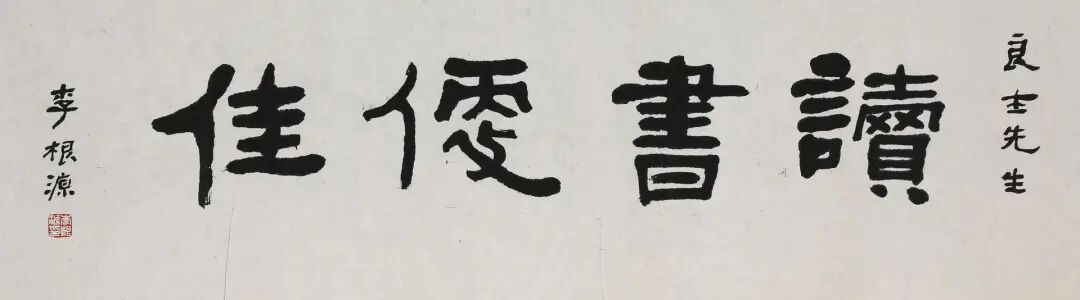 良士先生
讀書便佳
李根源